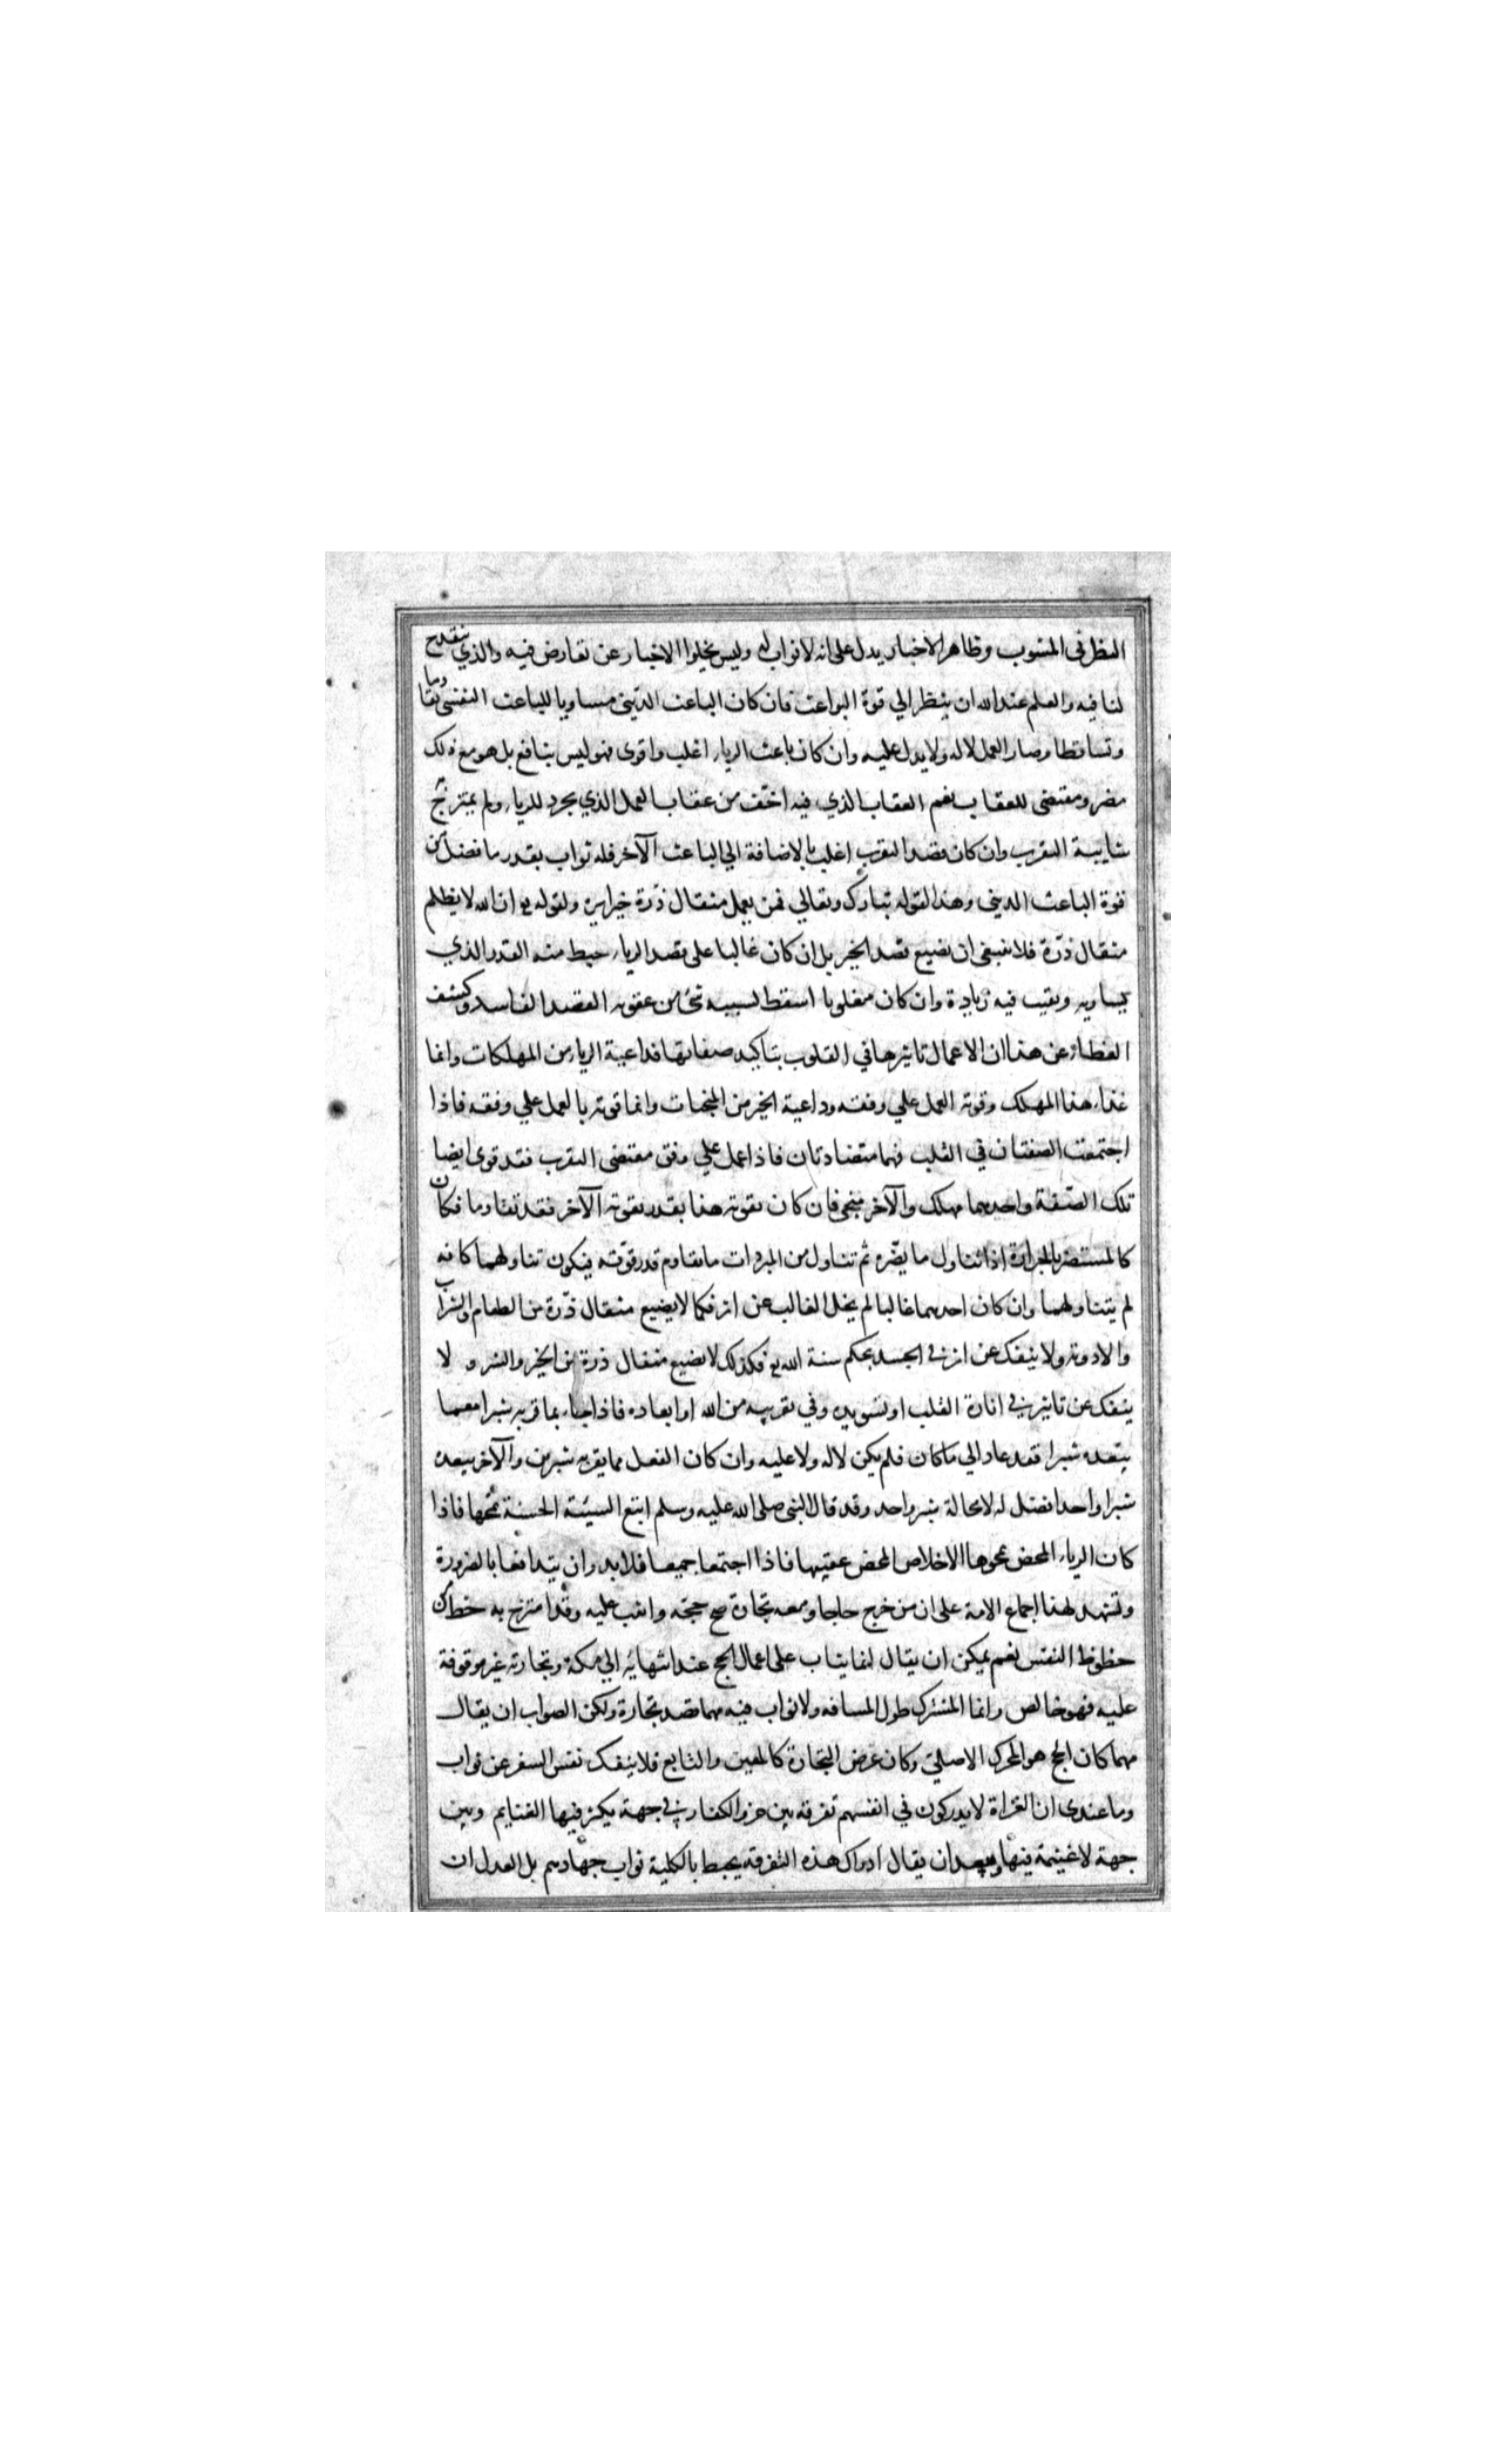 النظر في المشوب وظاهر الاخبار يدل على انه لا ثواب له وليس يخلوا الاخبار عن تعارض فيه والذي ينقدح
لنا فيه والعلم عند الله ان ينظر الي قوة البواعث فان كان الباعث الديني مساويا للباعث النفسي تقاوما
وتساقطا وصار العمل لا له ولا يدل عليه وان كان باعث الرياء اغلب واقوى فهو ليس بنافع بل هو مع ذلك
مضر ومقتضى للعقاب نعم العقاب الذي فيه اخف من عقاب العمل الذي يجرد للرياء ولم يمتزج
شايبة التقرب وان كان قصد التقرب اغلب بالاضافة الي الباعث الآخر فله ثواب بقدر ما فضل من
قوة الباعث الديني وهذا لقوله تبارك وتعالي فمن يعمل مثقال ذرة خيرا يره ولقوله تع ان الله لا يظلم
مثقال ذرة فلا ينبغي ان يضيع قصد الخير بل ان كان غالبا على قصد الرياء حبط منه القدر الذي
يساويه وبقيت فيه زيادة وان كان مغلوبا اسقط بسببه شئ من عقوبه القصد الفاسد وكشف
الغطاء عن هذا ان الاعمال تاثيرها في القلوب بتاكيد صفاتها فداعية الرياء من المهلكات وانما
غذاء هذا المهلك وقوته العمل علي وفقه وداعية الخير من المنجيات وانما قوته بالعمل علي وفقه فاذا
اجتمعت الصفتان في القلب فهما متضادتان فاذا عمل علي وفق مقتضى التقرب فقد قوى ايضا
تلك الصفة واحدهما مهلك والآخر منجي فان كان بقوته هذا بقدر بقوته الآخر فقد تقاوما فكان
كالمستضر بالحرارة اذا تناول ما يضره ثم تناول من المبردات ما يقاوم قدر قوته فيكون تناولهما كانه
لم يتناولهما وان كان احدهما غالبا لم يخل الغالب عن اثر فكما لا يضيع مثقال ذرة من الطعام والشراب
والادوية ولا ينفك عن اثر في الجسد بحكم سنة الله تع فكذلك لا يضيع مثقال ذرة من الخير والشر و لا
ينفك عن تاثير في انارة القلب او تسويده وفي تقريبه من الله او ابعاده فاذا جاء بما قربه شبرا معما
يبعده شبرا فقد عاد الي ما كان فلم يكن لا له ولا عليه وان كان الفعل مما يقربه شبرين والآخر يبعده
شبرا واحدا فضل له لا محالة شبر واحد وقد قال النبي صلى الله عليه وسلم اتبع السيئة الحسنة تمحها فاذا
كان الرياء المحض يمحوها الاخلاص المحض عقيبها فاذا اجتمعا جميعا فلا بد وان يتدافعا بالضرورة
وتشهد لهذا اجماع الامة على ان من خرج حاجا ومعه تجارة صح حجه واثيب عليه وقد امتزج به حظ من
حظوظ النفس نعم يمكن ان يقال انما يثاب على اعمال الحج عند انتهائه الي مكة وتجارته غير موقوفة
عليه فهو خالص وانما المشترك طول المسافه ولا ثواب فيه مهما قصد تجارة ولكن الصواب ان يقال
مهما كان الحج هو المحرك الاصلي وكان غرض التجارة كالمعين والتابع فلا ينفك نفس السفر عن ثواب
وما عندى ان الغزاة لا يدركون في انفسهم تفرقه بين غزو الكفار في جهة يكثر فيها الغنايم وبين
جهة لا غنيمة فيها ويبعد ان يقال ادراك هذه التفرقه يحبط بالكلية ثواب جهادهم بل العدل ان